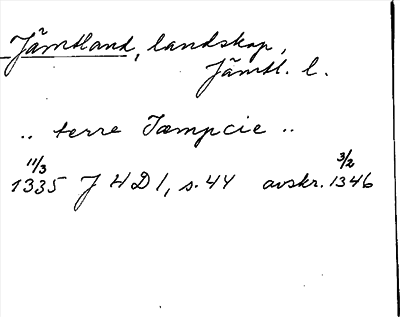 Jämtland, landskap,
Jämtl. l.
.. terre Iæmpcie ..
11/3 3/2
1335 J 4 D 1, s. 44 avskr. 1346